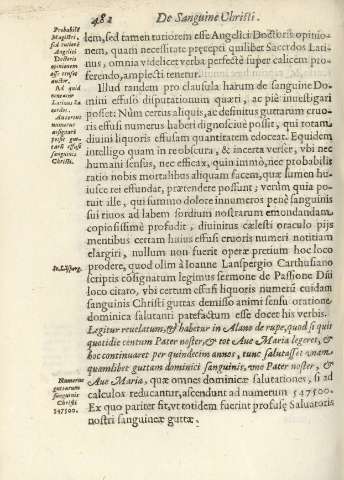 482
De Sanguine Christi.
Probabile
Magistri,
sed tutiorē
esse
Angelici
Doctoris
opinionem
esse censet
auctor.
Ad quid
teneatur
Latinus Sa
cerdos.
An certus
numerus
assignari
possit gut-
tarū effusi
sanguinis
Christi.
lem, sed tamen tutiorem esse Angelici Doctoris opinio-
nem, quam necessitate præcepti quilibet Sacerdos Lati-
nus, omnia videlicet verba perfectè super calicem pro-
ferendo, amplecti tenetur.
Illud tandem pro clausula harum de sanguine Do-
mini effuso disputationum quæri, ac piè inuestigari
posset: Nùm certus aliquis, ac definitus guttarum cruo-
ris effusi numerus haberi dignoscivè possit, qui totam
diuini liquoris effusam quantitatem edoceat. Equidem
intelligo quam in re obscura, & incerta verser, vbi nec
humani sensus, nec efficax, quin immò, nec probabilis
ratio nobis mortalibus aliquam facem, quæ lumen hu-
iusce rei effundat, prætendere possunt; verùm quia po-
tuit ille, qui summo dolore innumeros penè sanguinis
sui riuos ad labem sordium nostrarum emondandam
copiosissimè profudit, diuinitus cælesti oraculo pijs
mentibus certam huius effusi cruoris numeri notitiam
elargiri, nullum non fuerit operæ pretium hoc loco
In Läsperg.
prodere, quod olim à Ioanne Lanspergio Carthusiano
scriptis cōsignatum legimus sermone de Passione Dñi
loco citato, vbi certum effusi liquoris numerū cuidam
sanguinis Christi guttas demisso animi sensu oratione
dominica salutanti patefactum esse docet his verbis.
Legitur reuelatum, & habetur in Alano de rupe, quod si quit
quotidie centum Pater noster, & tot Aue Maria legeret, &
hoc continuaret per quindecim annos, tunc salutasset vnam-
quamlibet guttam dominici sanguinis, vno Pater noster, &
Numerus
guttarum
sanguinis
Christi
547500.
Aue Maria, quæ omnes dominicæ salutationes, si ad
calculos reducantur, ascendunt ad numerum 547500.
Ex quo pariter fit, vt totidem fuerint profusę Saluatoris
nostri sanguineæ guttæ.